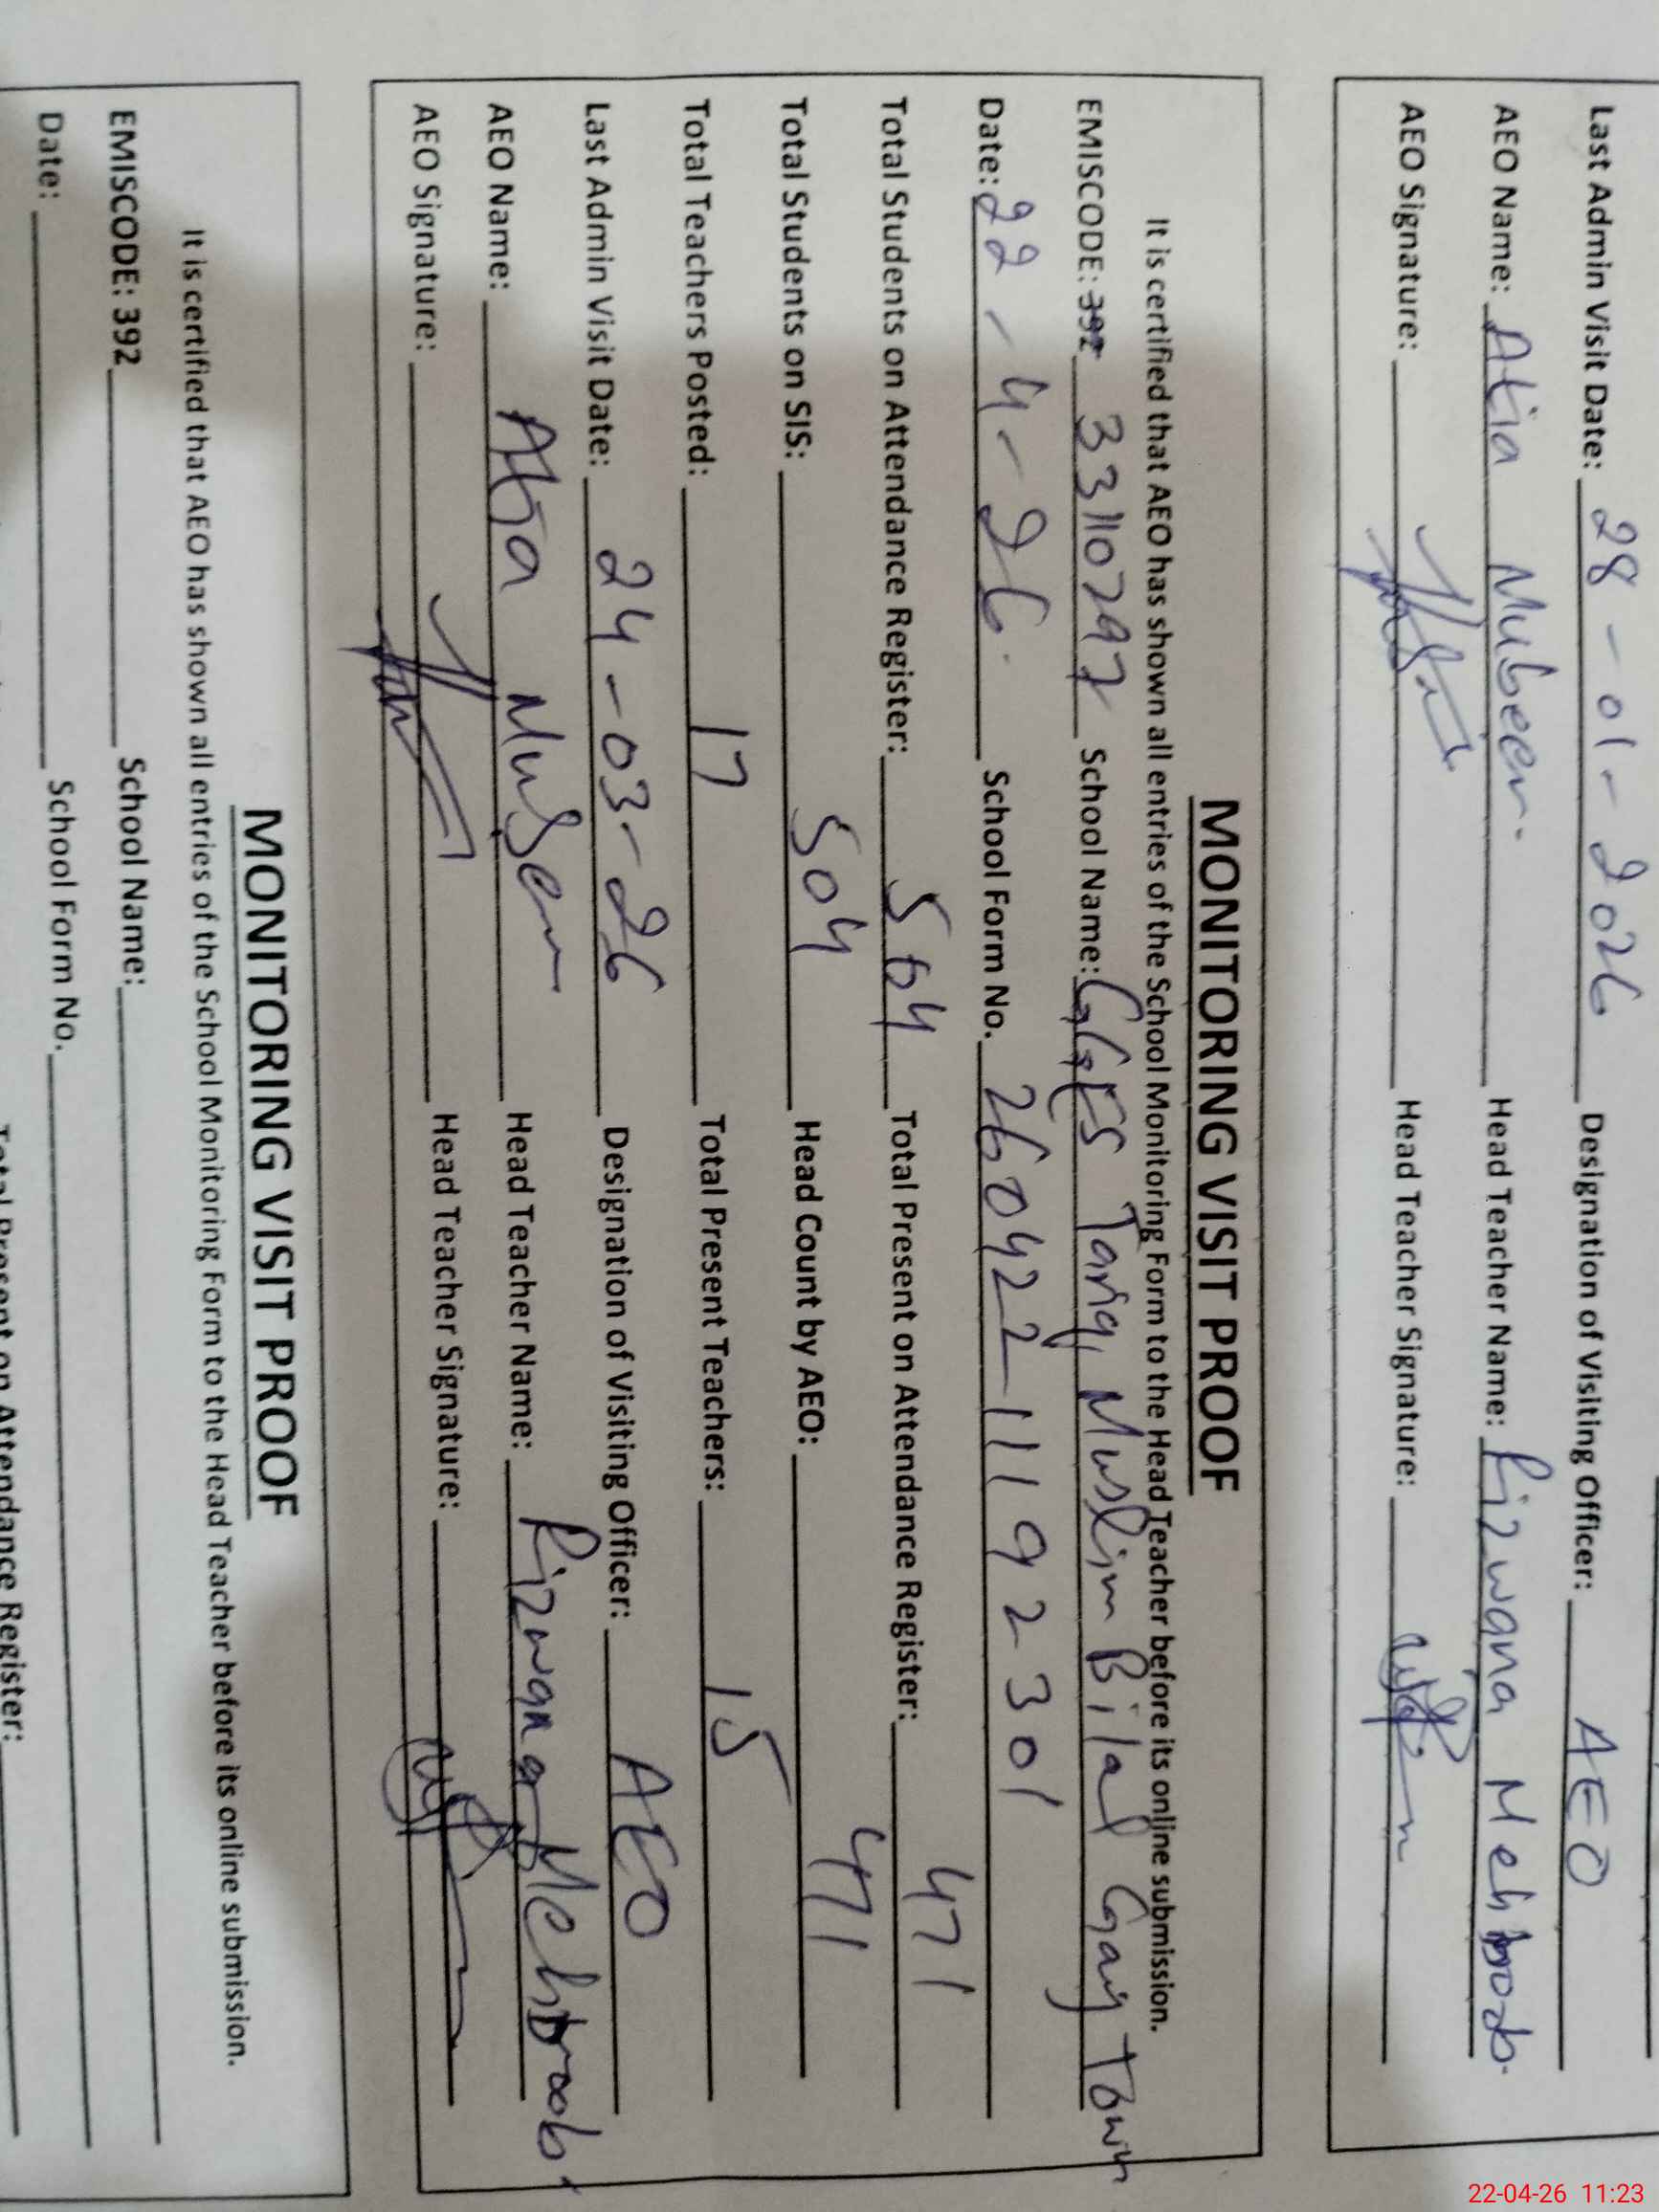 Last Admin Visit Date: 28-01-2026 Designation of Visiting Officer: AEO
AEO Name: Atia Mubeen. Head Teacher Name: Rizwana Mehboob.
AEO Signature: Head Teacher Signature:
MONITORING VISIT PROOF
It is certified that AEO has shown all entries of the School Monitoring Form to the Head Teacher before its online submission.
EMISCODE: 392 33110797 School Name: GGES Tariq Muslim Bilal Town
Date: 22-4-26. School Form No. 260422-1192301
Total Students on Attendance Register: 504 Total Present on Attendance Register: 471
Total Students on SIS: 504 Head Count by AEO: 471
Total Teachers Posted: 17 Total Present Teachers: 15
Last Admin Visit Date: 24-03-26 Designation of Visiting Officer: AEO
AEO Name: Atia Mubeen Head Teacher Name: Rizwana Mehboob
AEO Signature: Head Teacher Signature:
MONITORING VISIT PROOF
It is certified that AEO has shown all entries of the School Monitoring Form to the Head Teacher before its online submission.
EMISCODE: 392 School Name:
Date: School Form No.
Total Present on Attendance Register:
22-04-26 11:23